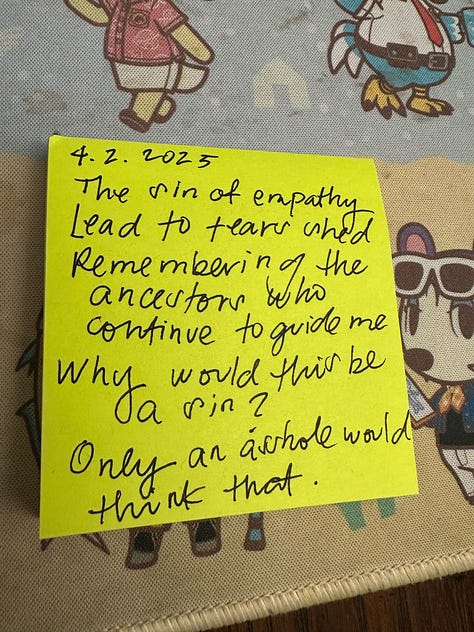 4.2.2025
The sin of empathy
Lead to tears shed
Remembering the
ancestors who
continue to guide me
Why would this be
a sin?
Only an asshole would
think that.